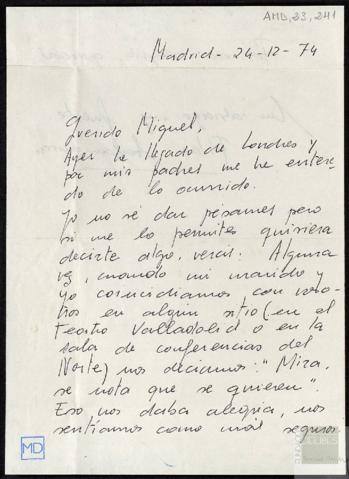 AMD,23,241
Madrid - 24-12-74
Querido Miguel,
Ayer he llegado de Londres y
por mis padres me he entera-
do de lo ocurrido.
Yo no sé dar pésames pero
si me lo permites quisiera
decirte algo, verás: Alguna
vez, cuando mi marido y
yo coincidíamos con voso-
tros en algún sitio (en el
Teatro Valladolid o en la
sala de conferencias del
Norte) nos decíamos: "Mira,
se nota que se quieren".
Eso nos daba alegría, nos
sentíamos como más seguros
MD